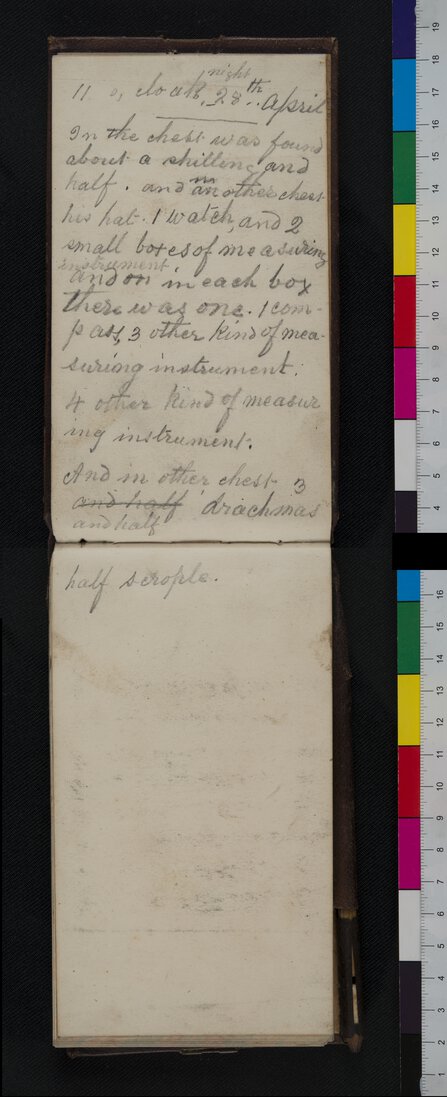 11 o, cloak, night 28th April
In the chest was found
about a shilling and
half. and in another chest
his hat. 1 watch, and 2
small boxes of measuring
instrument
and on in each box
there was one. 1 com-
pass, 3 other kind of mea-
suring instrument.
4 other kind of measur
ing instrument.
And in other chest 3
and half drachmas
and half
half scrople.